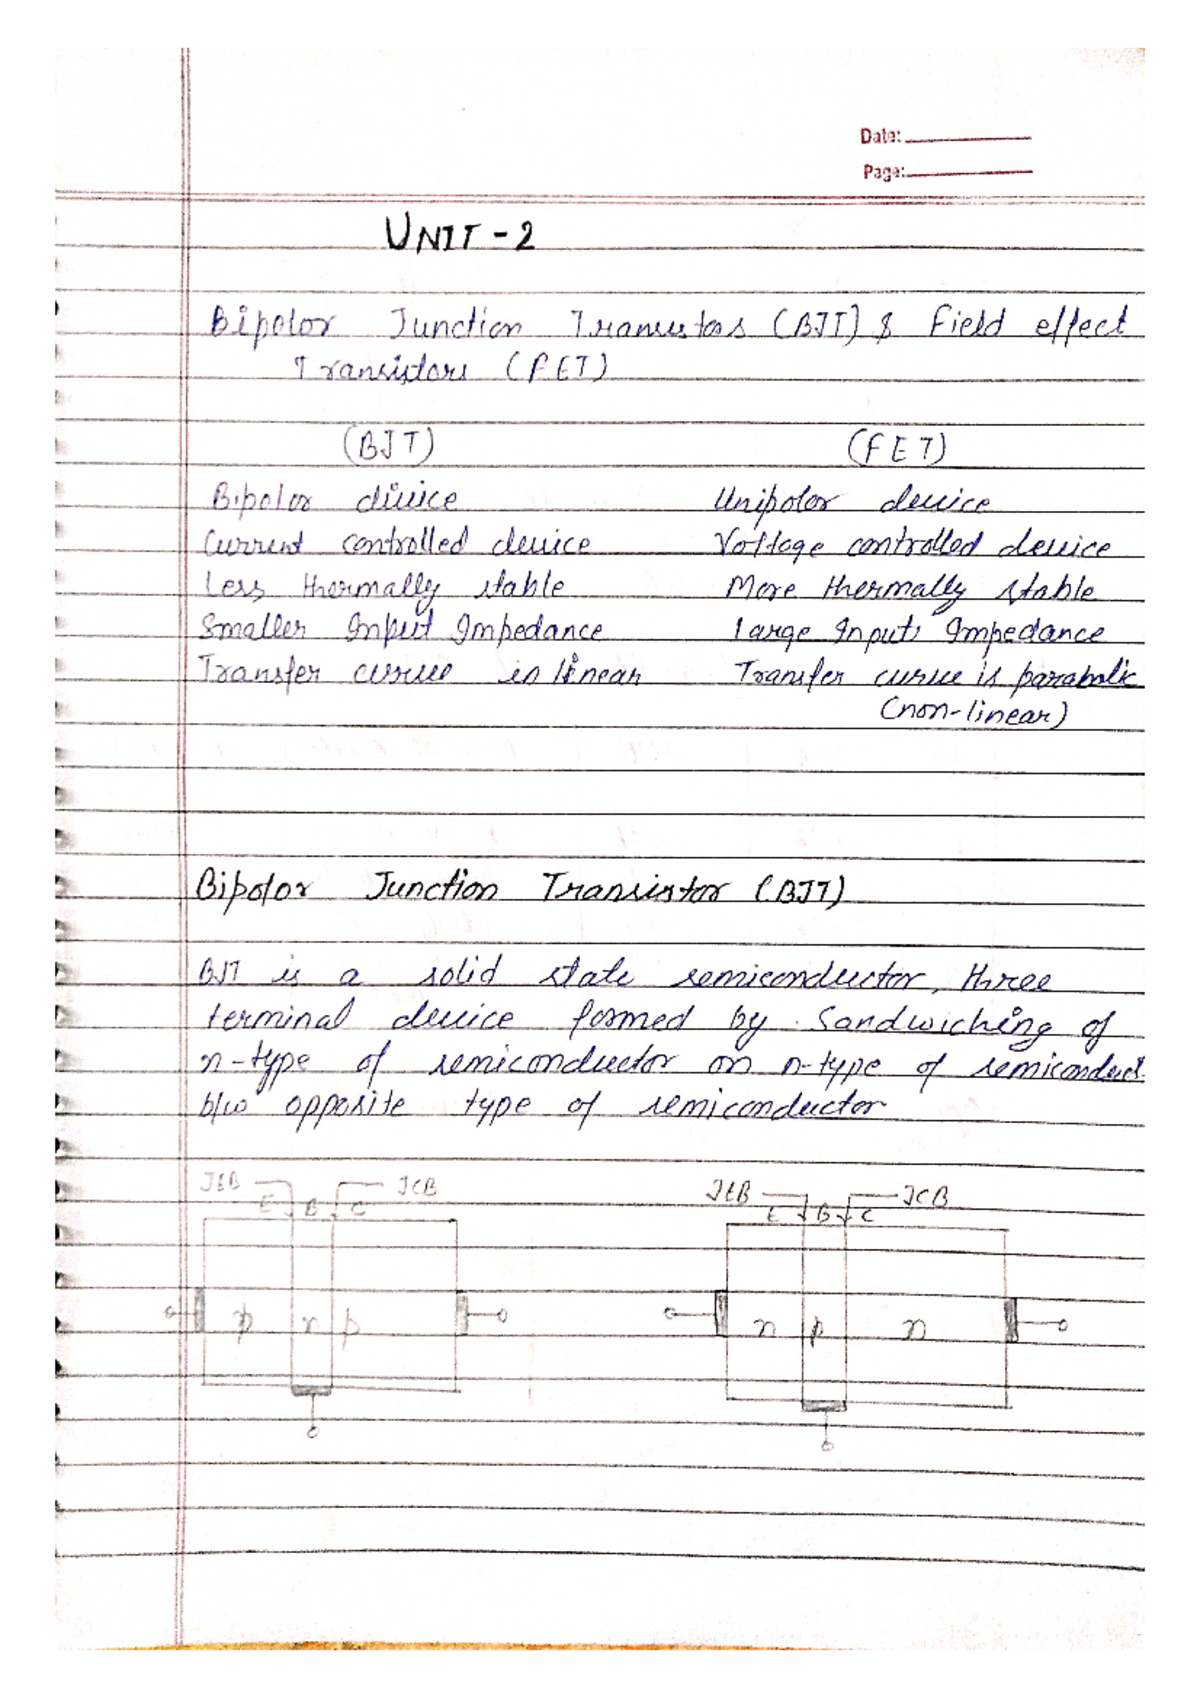 Date:
Page:
UNIT - 2
Bipolar Junction Transistors (BJT) & Field effect
Transistors (FET)
(BJT) (FET)
Bipolar device Unipolar device
Current controlled device Voltage controlled device
Less thermally stable More thermally stable
Smaller Input Impedance large Input Impedance
Transfer curve is linear Transfer curve is parabolic
(non-linear)
Bipolar Junction Transistor (BJT)
BJT is a solid state semiconductor, three
terminal device formed by Sandwiching of
n-type of semiconductor on n-type of semiconduct.
b/w opposite type of semiconductor
JEB JCB JEB JCB
E B C E B C
p n p n p n